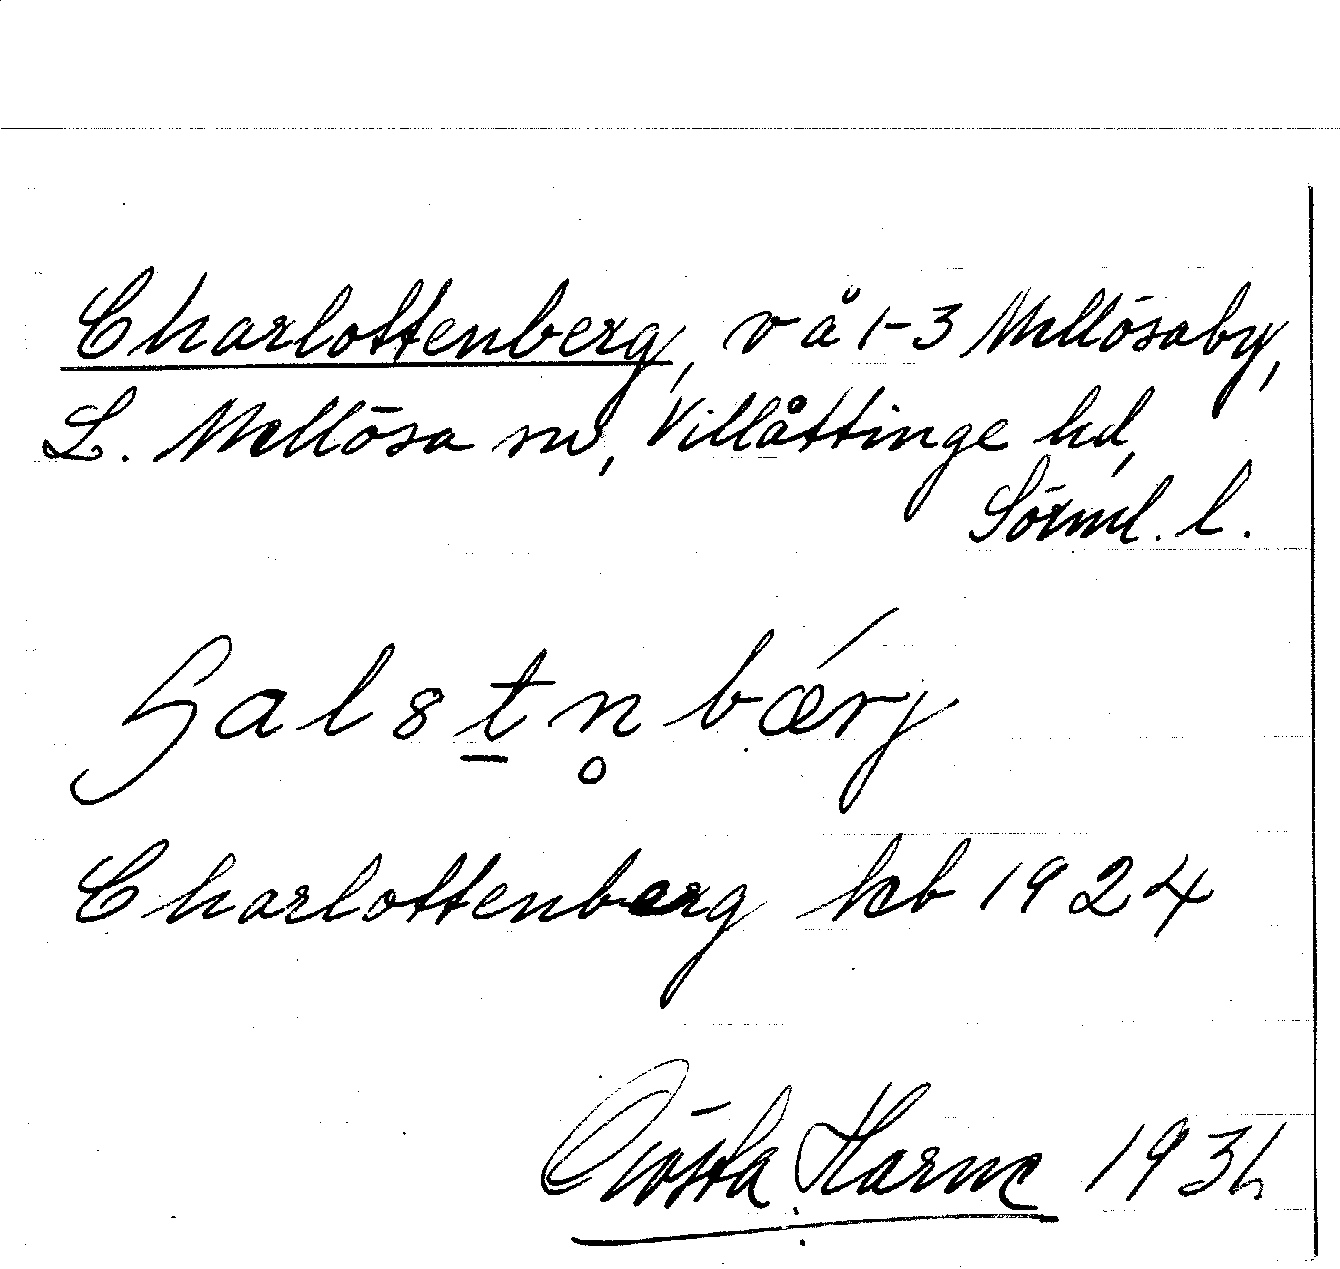 Charlottenberg, v å 1-3 Mellösaby,
L. Mellösa sn, Villåttinge hd,
Sörml. l.
ɧalɞt̠n̥bǽrj
Charlottenberg kb 1924
Gösta Harne 193